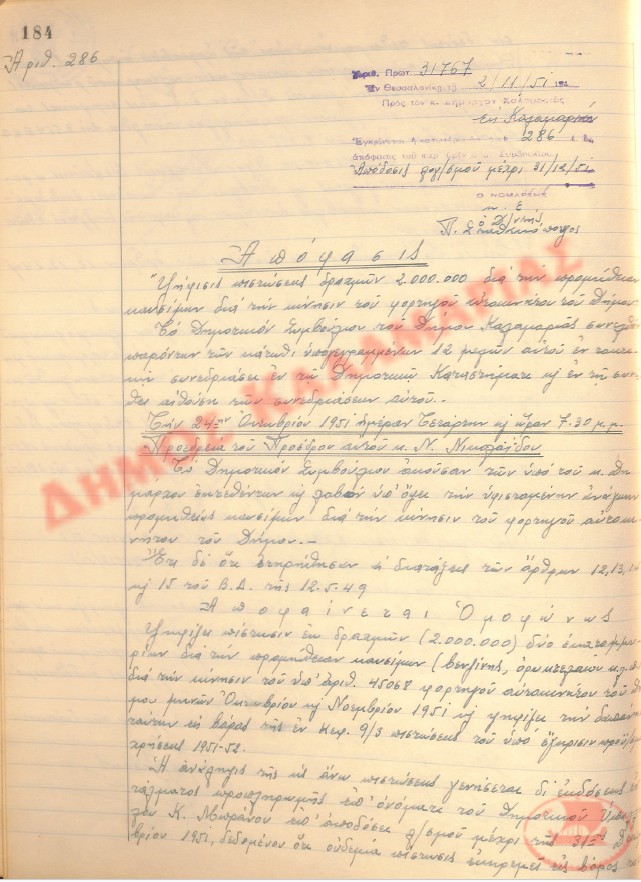 184
Ἀριθ. 286
Ἀριθ. Πρωτ. 31767
Ἐν Θεσσαλονίκῃ τῇ 2/11/51
Πρὸς τὸν κ. Δήμαρχον Καλαμαριᾶς
Εἰς Καλαμαριὰ
Ἐγκρίνεται ἡ 286
ἀπόφασις τοῦ Συμβουλίου
Ἀπόδοσις λογ/σμοῦ μέχρι 31/12/51
Ὁ ΝΟΜΑΡΧΗΣ
ὁ Δ/ντής
Ἀπόφασις
Ψήφισις πιστώσεως δραχμῶν 2.000.000 διὰ τὴν προμήθειαν
καυσίμων διὰ τὴν κίνησιν τοῦ φορτηγοῦ αὐτοκινήτου τοῦ Δήμου
Τὸ Δημοτικὸν Συμβούλιον τοῦ Δήμου Καλαμαριᾶς συνελθὸν
παρόντων τῶν κάτωθι ὑπογεγραμμένων 12 μελῶν αὐτοῦ ἐν τακτι-
κῇ συνεδριάσει ἐν τῷ Δημοτικῷ Καταστήματι κ ἐν τῇ συνή-
θει αἰθούσῃ τῶν συνεδριάσεων αὐτοῦ.
Τὴν 24ην Ὀκτωβρίου 1951 ἡμέραν Τετάρτην κ ὥραν 7.30 μ.μ.
Προεδρείᾳ τοῦ Προέδρου αὐτοῦ κ. Ν. Νικολαΐδου
Τὸ Δημοτικὸν Συμβούλιον ἀκοῦσαν τῶν ὑπὸ τοῦ κ. Δη-
μάρχου ἐκτεθέντων κ λαβὸν ὑπ' ὄψει τὴν ὑφισταμένην ἀνάγκην
προμηθείας καυσίμων διὰ τὴν κίνησιν τοῦ φορτηγοῦ αὐτοκι-
νήτου τοῦ Δήμου.—
Ἔτι δὲ ὅτι ἐτηρήθησαν αἱ διατάξεις τῶν ἄρθρων 12, 13, 14
κ 15 τοῦ Β.Δ. τῆς 12.5.49
Ἀποφαίνεται Ὁμοφώνως
Ψηφίζει πίστωσιν ἐκ δραχμῶν (2.000.000) δύο ἑκατομμυ-
ρίων διὰ τὴν προμήθειαν καυσίμων (βενζίνης, ὀρυκτελαίου κ.λ.π.)
διὰ τὴν κίνησιν τοῦ ὑπ' ἀριθ. 45068 φορτηγοῦ αὐτοκινήτου τοῦ Δή-
μου μηνῶν Ὀκτωβρίου κ Νοεμβρίου 1951 κ ψηφίζει τὴν δαπάνην
ταύτην εἰς βάρος τῆς ἐν Κεφ. 9/3 πιστώσεως τοῦ ὑπὸ ἔγκρισιν προϋ/σμοῦ
χρήσεως 1951-52.
Ἡ ἀνάληψις τῆς ὡς ἄνω πιστώσεως γενήσεται δι' ἐκδόσεως ἐν-
τάλματος προπληρωμῆς ἐπ' ὀνόματι τοῦ Δημοτικοῦ Ὑπαλλή-
λου Κ. ἐπ' ἀποδόσει λ/σμοῦ μέχρι τῆς 31ης Δεκεμ-
βρίου 1951, δεδομένου ὅτι οὐδεμία πίστωσις ἐκκρεμεῖ εἰς βάρος
ΔΗΜΟΣ ΚΑΛΑΜΑΡΙΑΣ